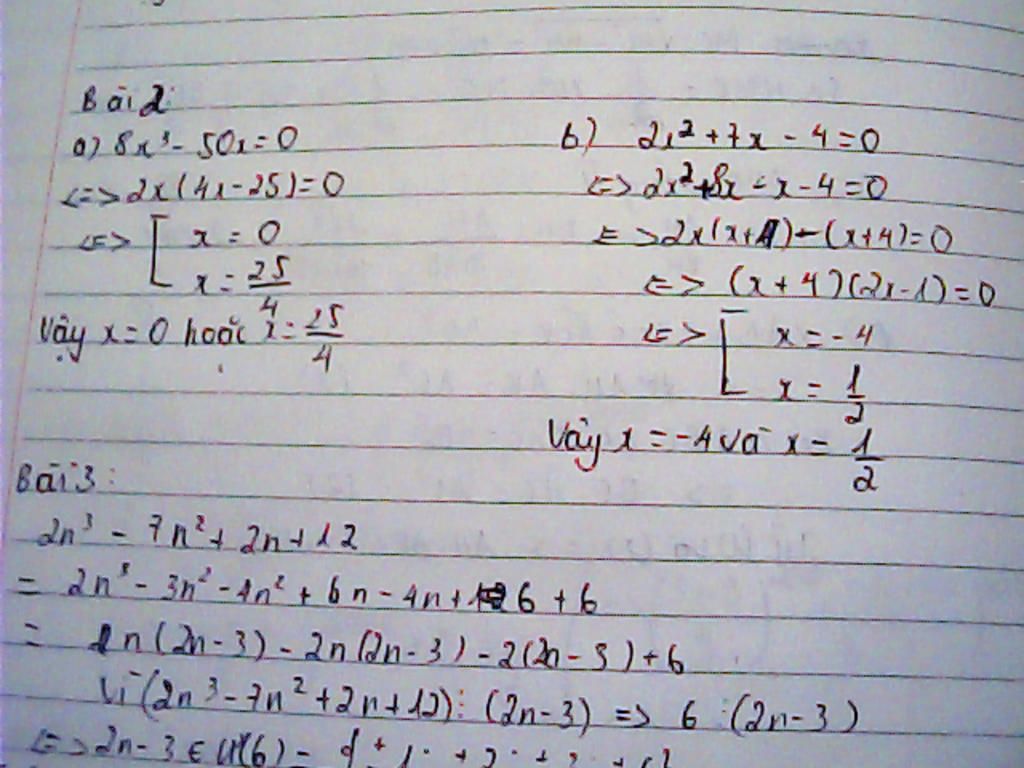 Bài 2:
a) 8x³ - 50x = 0
<=> 2x(4x - 25) = 0
<=> [ x = 0
x = 25/4
Vậy x = 0 hoặc x = 25/4
b) 2x² + 7x - 4 = 0
<=> 2x² + 8x - x - 4 = 0
<=> 2x(x + 4) - (x + 4) = 0
<=> (x + 4)(2x - 1) = 0
<=> [ x = -4
x = 1/2
Vậy x = -4 và x = 1/2
Bài 3:
2n³ - 7n² + 2n + 12
= 2n³ - 3n² - 4n² + 6n - 4n + 6 + 6
= n(2n - 3) - 2n(2n - 3) - 2(2n - 3) + 6
Vì (2n³ - 7n² + 2n + 12) ⋮ (2n - 3) => 6 ⋮ (2n - 3)
<=> 2n - 3 ∈ Ư(6) =